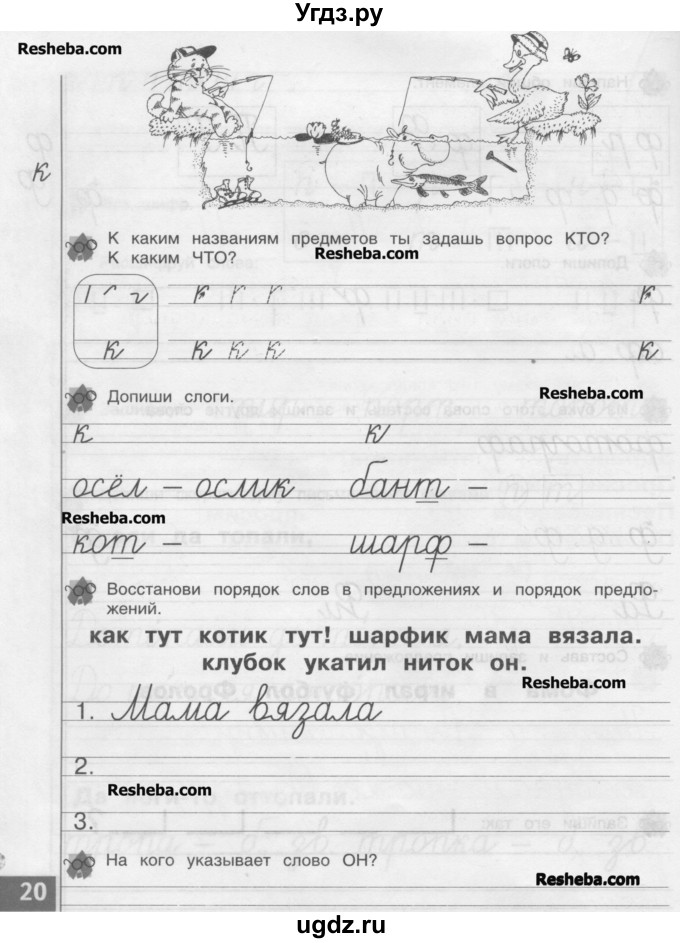 Угдз.ру
Resheba.com
к
К каким названиям предметов ты задашь вопрос КТО?
К каким ЧТО?
Resheba.com
к
к к к к
Допиши слоги.
Resheba.com
к к
осёл – ослик бант –
Resheba.com
кот – шарф –
Восстанови порядок слов в предложениях и порядок предло-
жений.
как тут котик тут! шарфик мама вязала.
клубок укатил ниток он.
Resheba.com
1. Мама вязала
2.
Resheba.com
3.
На кого указывает слово ОН?
Resheba.com
20
ugdz.ru